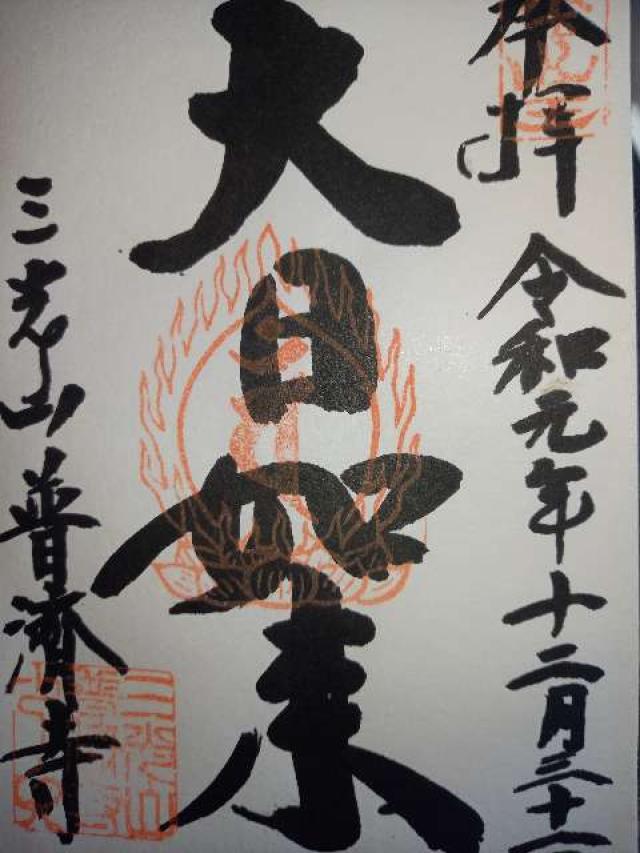 奉拝
令和元年十二月三十一日
大日如来
三光山普濟寺